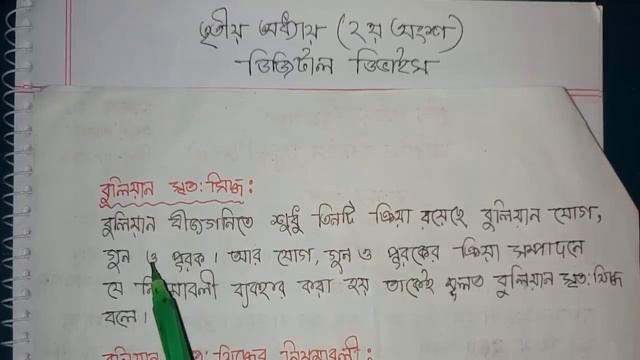 তৃতীয় অধ্যায় (২য় অংশ)
ডিজিটাল ডিভাইস
বুলিয়ান স্বত:সিদ্ধ :
বুলিয়ান বীজগনিতে শুধু তিনটি ক্রিয়া রয়েছে বুলিয়ান যোগ,
গুন ও পুরক। আর যোগ, গুন ও পুরকের ক্রিয়া সম্পাদনে
যে ব্যবহার করা হয় তাকেই মূলত বুলিয়ান স্বত:সিদ্ধ
বলে।
বুলিয়ান স্বত:সিদ্ধের নিয়মাবলী :